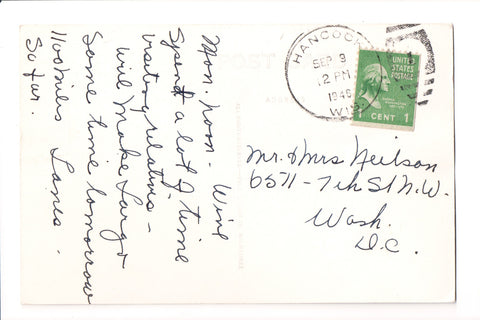 Mon. Noon - Wire
Spent a lot of time
visiting relatives -
will Make Largo
Some time tomorrow
1100 miles Lanes.
So far.
HANCOCK
SEP 3
12 PM
1946
WIS.
UNITED
STATES
POSTAGE
1 CENT 1
Mr. & Mrs Neilson
6511 - 7th St N.W.
Wash.
D.C.